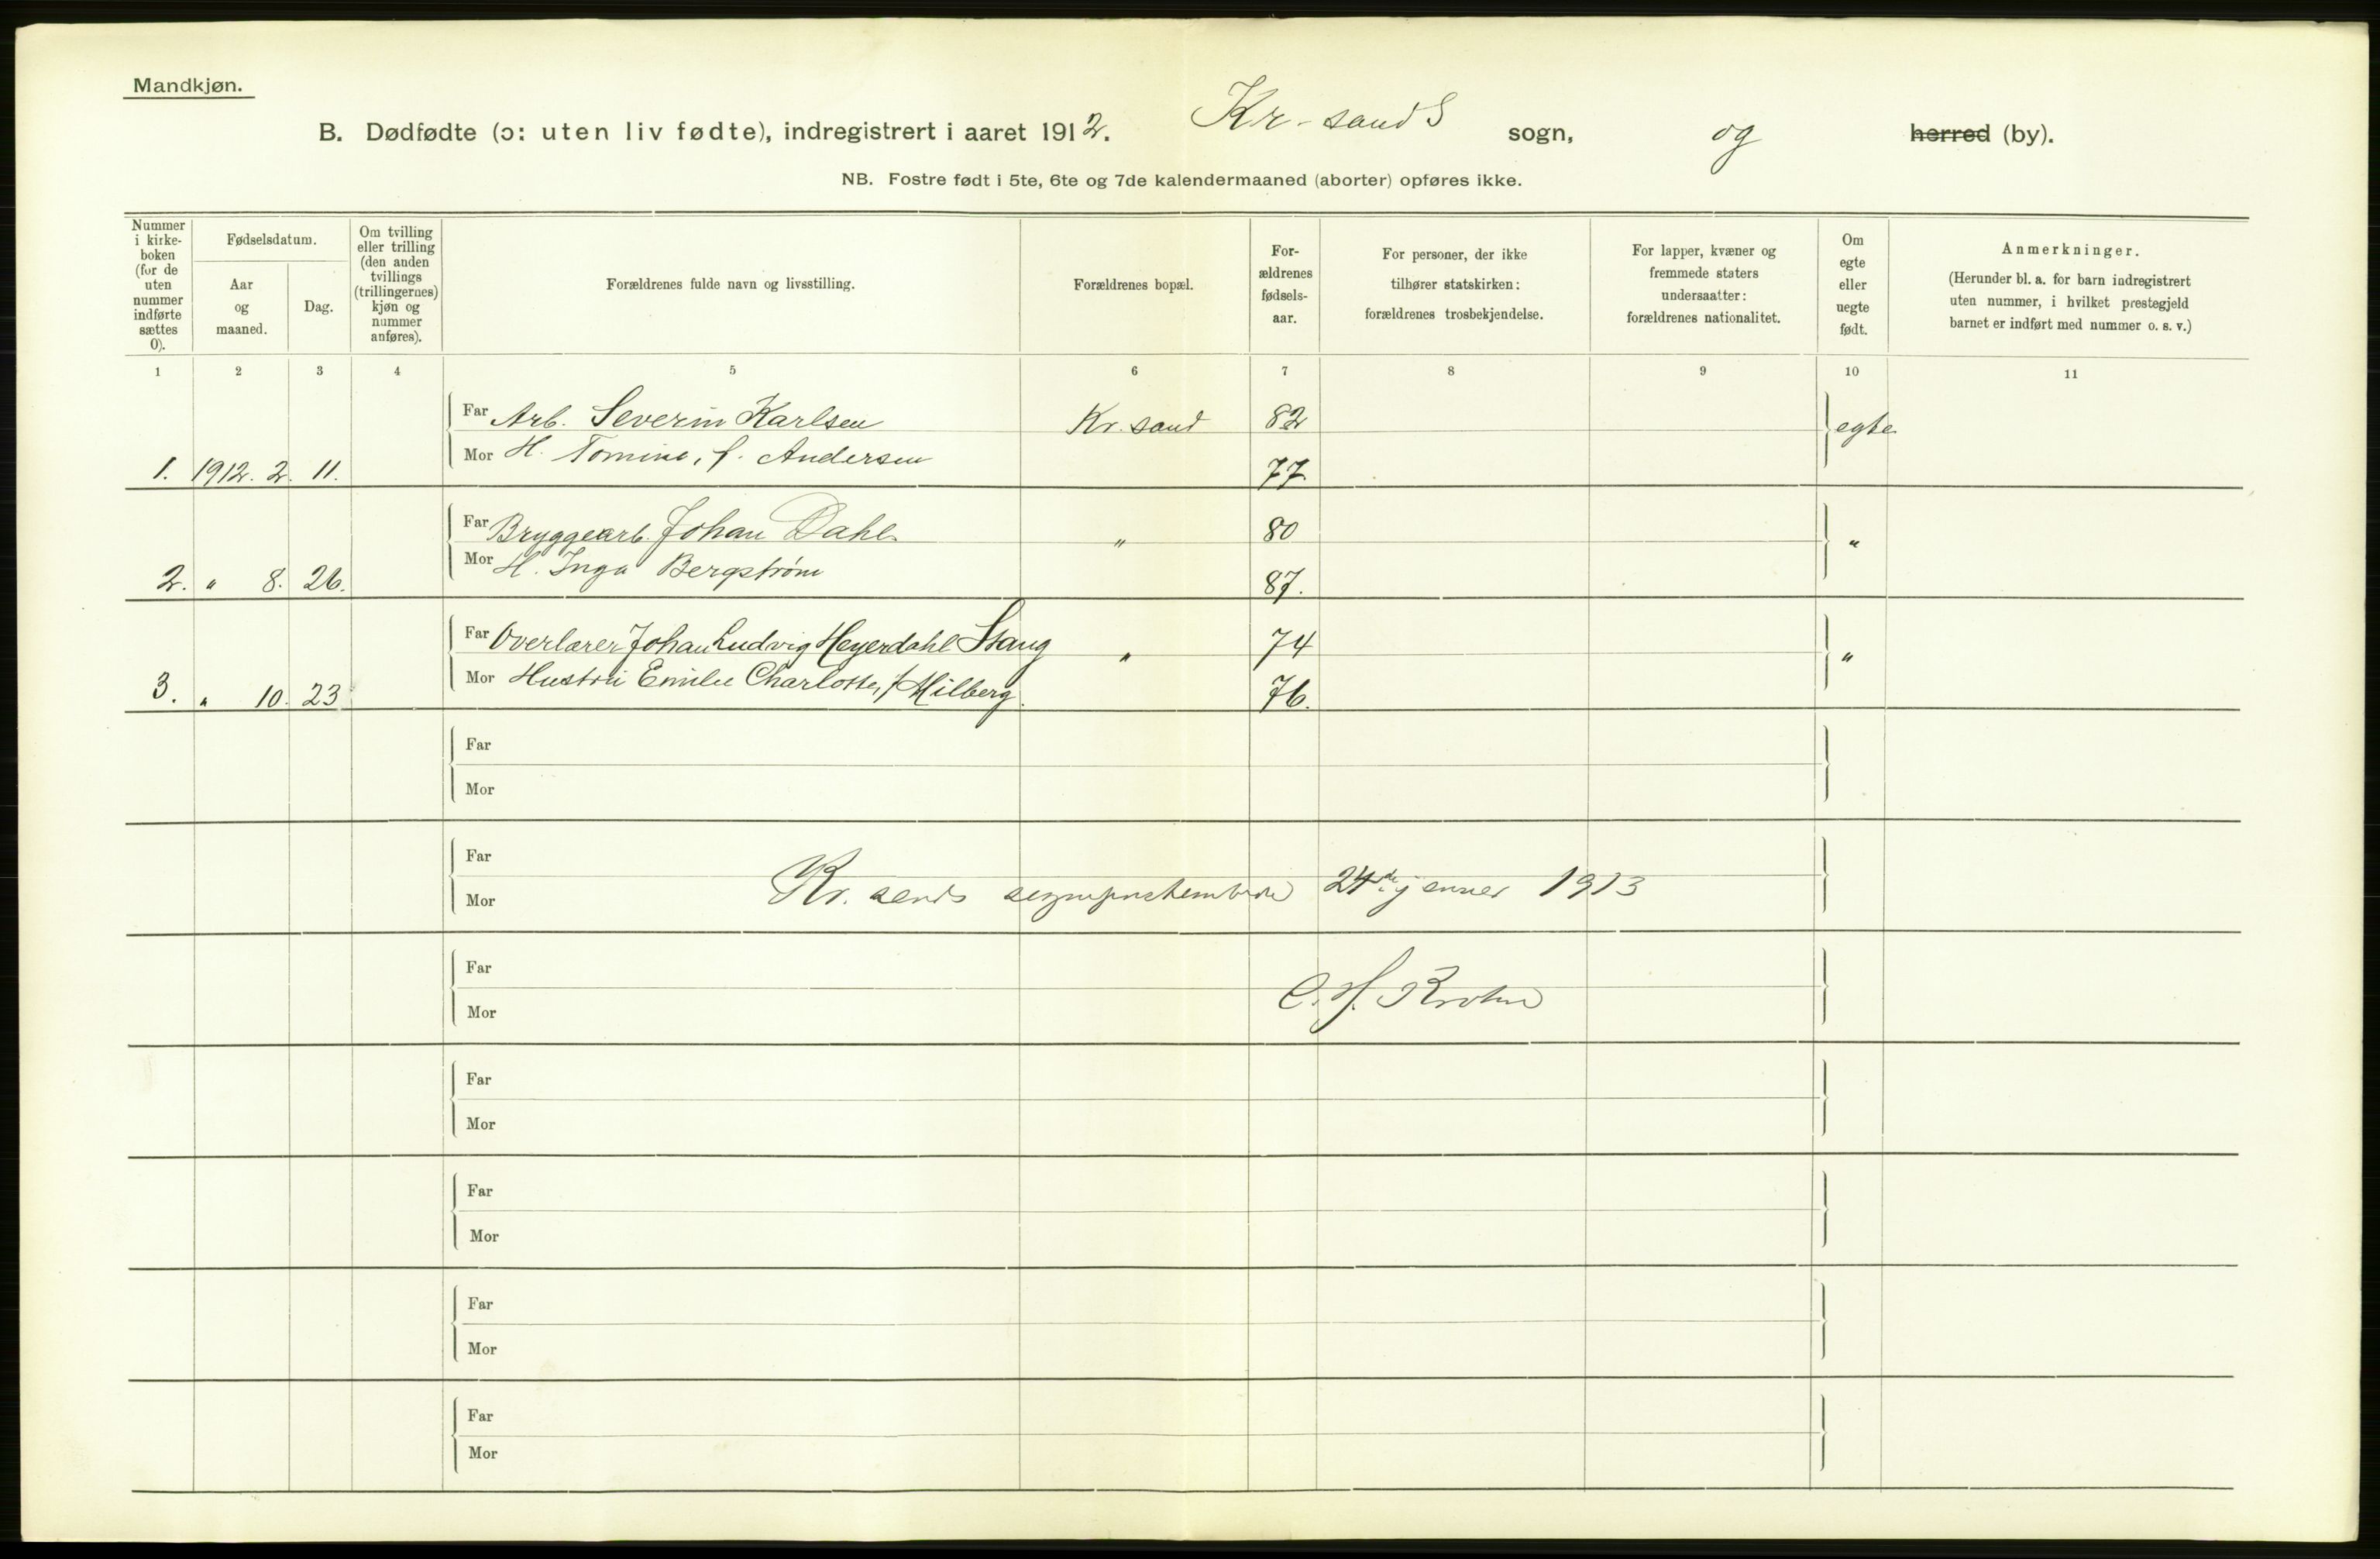 Mandkjøn.
B. Dødfødte (ɔ: uten liv fødte), indregistrert i aaret 1912. Kr-sands sogn, og herred (by).
NB. Fostre født i 5te, 6te og 7de kalendermaaned (aborter) opføres ikke.
Nummer i kirke-boken (for de uten nummer indførte sættes 0).
Fødselsdatum.
Aar og maaned.
Dag.
Om tvilling eller trilling (den anden tvillings (trillingernes) kjøn og nummer anføres).
Forældrenes fulde navn og livsstilling.
Forældrenes bopæl.
For-ældrenes fødsels-aar.
For personer, der ikke tilhører statskirken: forældrenes trosbekjendelse.
For lapper, kvæner og fremmede staters undersaatter: forældrenes nationalitet.
Om egte eller uegte født.
Anmerkninger.
(Herunder bl. a. for barn indregistrert uten nummer, i hvilket prestegjeld barnet er indført med nummer o. s. v.)
1 2 3 4 5 6 7 8 9 10 11
Far Arb. Severin Karlsen Kr. sand 82 egte
1. 1912. 2. 11. Mor H. Tomine, f. Andersen 77.
Far Bryggearb. Johan Dahl. " 80 "
2. " 8. 26. Mor H. Inga Bergstrøm 87.
Far Overlærer Johan Ludvig Heyerdahl Stang " 74 "
3. " 10. 23 Mor Hustru Emilie Charlotte, f. Milberg. 76.
Far
Mor
Far
Mor Kr. sands 24de januar 1913
Far
Mor C. H. Krohn
Far
Mor
Far
Mor
Far
Mor
Far
Mor